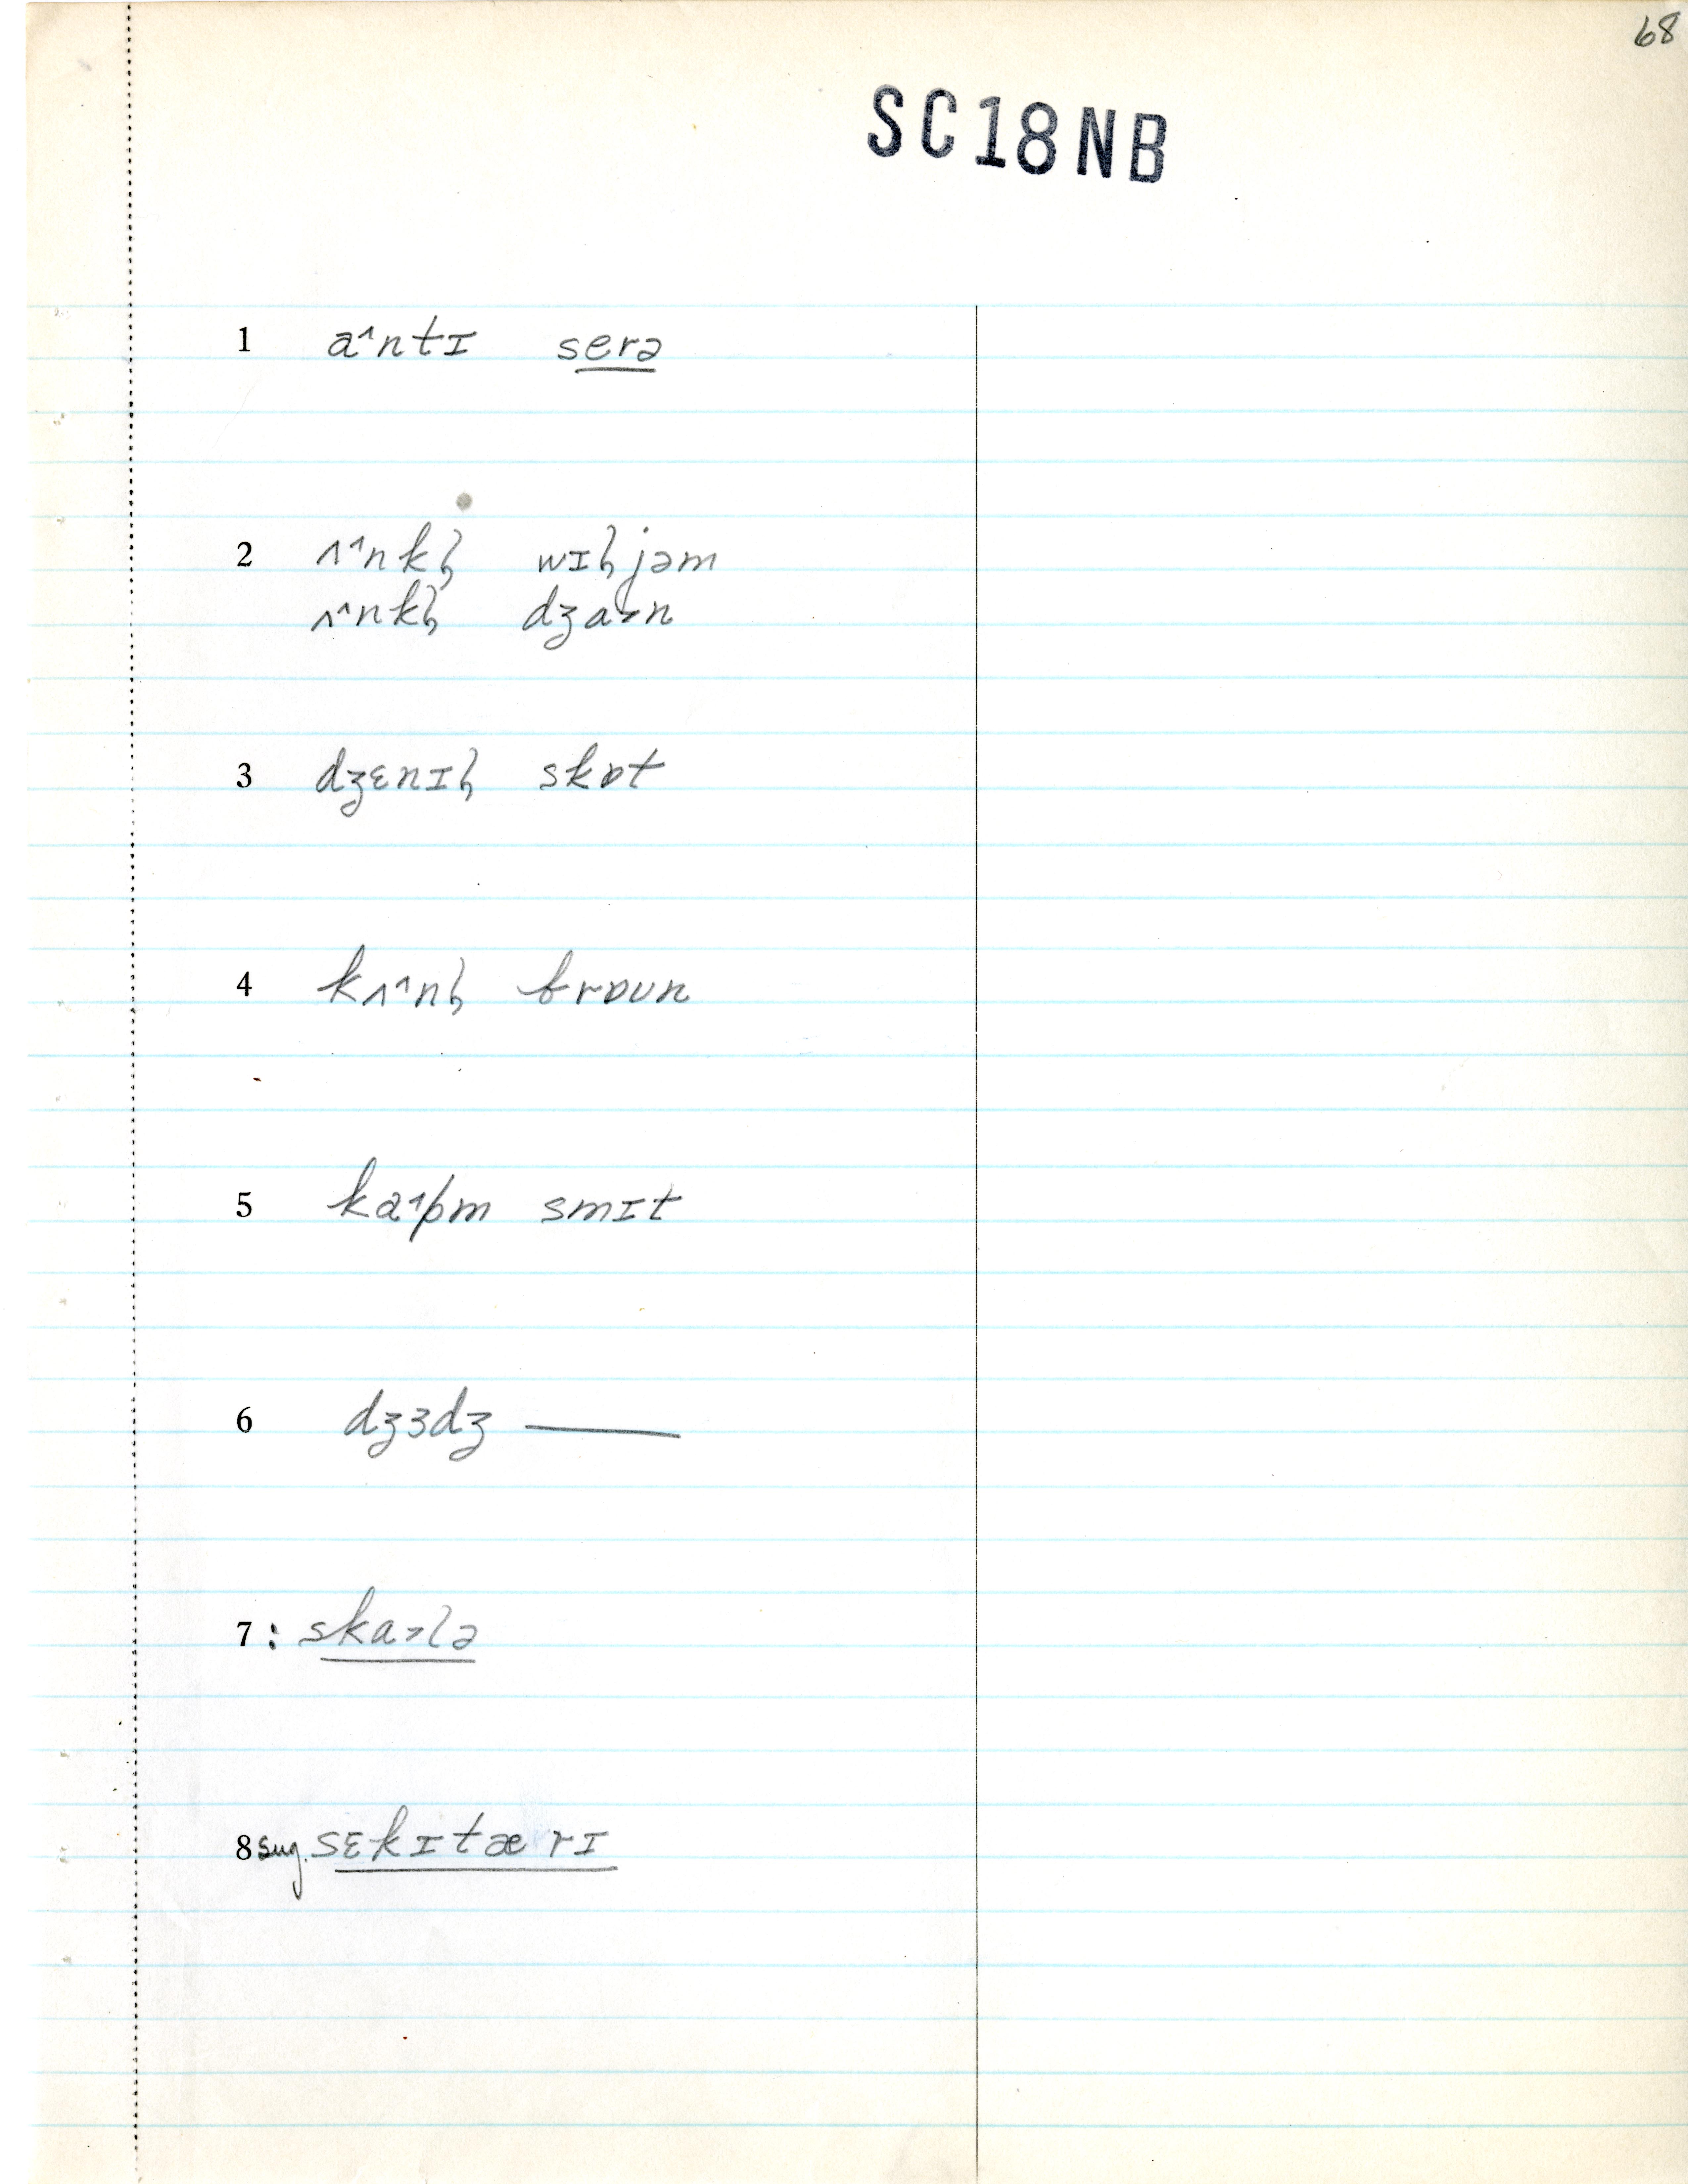 68
SC18NB
1 a˄ntɪ serə
2 ʌ˄nkl̩ wɪl̩jəm
ʌ˄nkl̩ dʒa˃n
3 dʒɛnɪl̩ skɒt
4 kʌ˄nl̩ brɒun
5 ka˄pm smɪt
6 dʒɜdʒ ———
7 : ska˃lə
8 sug. sɛkɪtæ rɪ